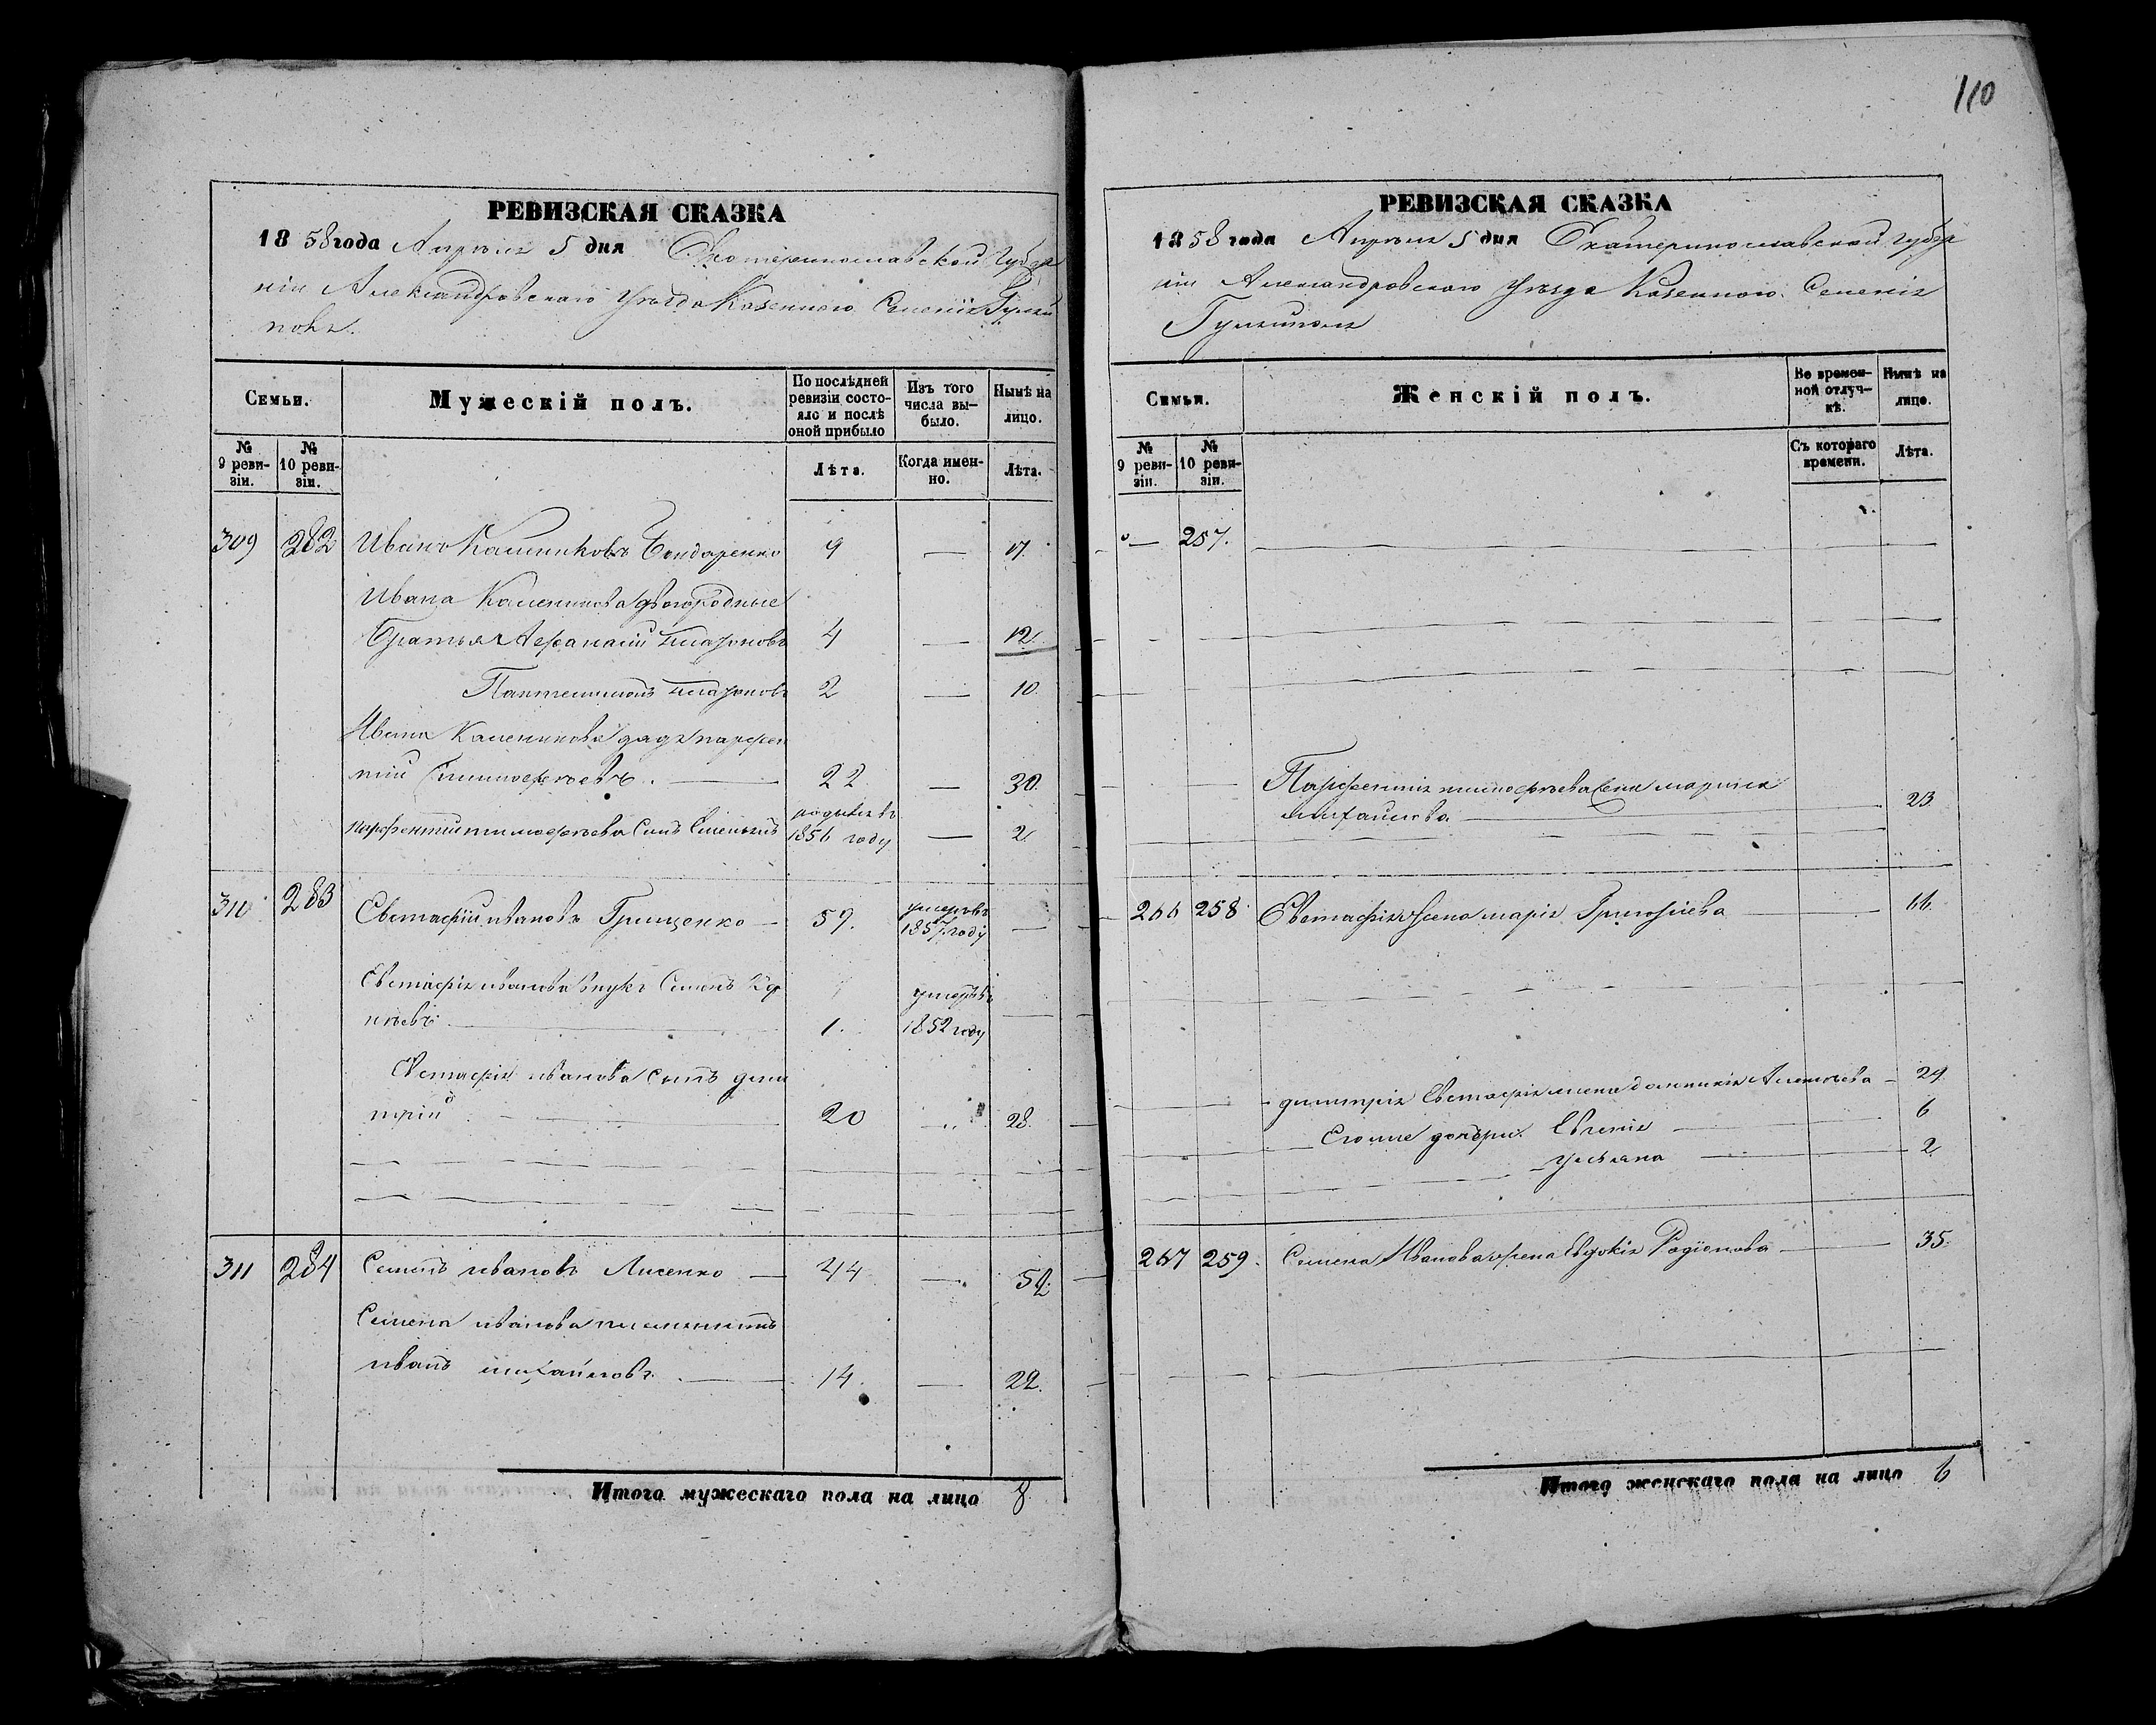 110
РЕВИЗСКАЯ СКАЗКА
18 58 года Апреля 5 дня Екатеринославской Губер
ніи Александровскаго уѣзда Казеннаго Селенія Гуляй
поля.
Семьи.
Мужескій полъ.
По послѣдней ревизіи состояло и послѣ оной прибыло
Изъ того числа выбыло.
Нынѣ на лицо.
№ 9 ревизіи.
№ 10 ревизіи.
Лѣта.
Когда именно.
Лѣта.
309 282 Иванъ Калениковъ Бондаренко 9 — 17.
Ивана Каленикова двоюродные
Братья Афанасий Платоновъ 4 — 12.
Пантелимонъ Платоновъ 2 — 10.
Ивана Каленикова дядя парфен
тий Тимофѣевъ. — 22 — 30.
Парфентия тимофѣева Сынъ Емельянъ родился въ 1856 году — 2.
310 283 Евстафий ивановъ Грищенко — 59. умеръ въ 1857 году —
Евстафия иванова внукъ Семенъ
нѣевъ — 1. умеръ въ 1852 году —
Евстафия иванова Сынъ дми
трий — 20 — 28.
311 284 Семенъ ивановъ Лисенко — 44 — 52.
Семена иванова племянникъ
иванъ михайловъ. — 14. — 22.
Итого мужескаго пола на лицо 8
РЕВИЗСКАЯ СКАЗКА
1858 года Апреля 5 дня Екатеринославской губер
ніи Александровскаго уѣзда Казеннаго Селенія
Гуляйполя
Семьи.
Женскій полъ.
Во временной отлучкѣ.
Нынѣ на лицо.
№ 9 ревизіи.
№ 10 ревизіи.
Съ котораго времени.
Лѣта.
— 257. —
Парфентия тимофѣева жена марина
михайлова. — 23.
266 258 Евстафия жена мария Григориева — 66.
димитрия Евстафия жена домникия Алексѣева — 29
Его же дочери. Евгения — 6
Ульяна — 2
267 259. Семена Иванова жена Евдокия Родионова — 35.
Итого женскаго пола на лицо 6